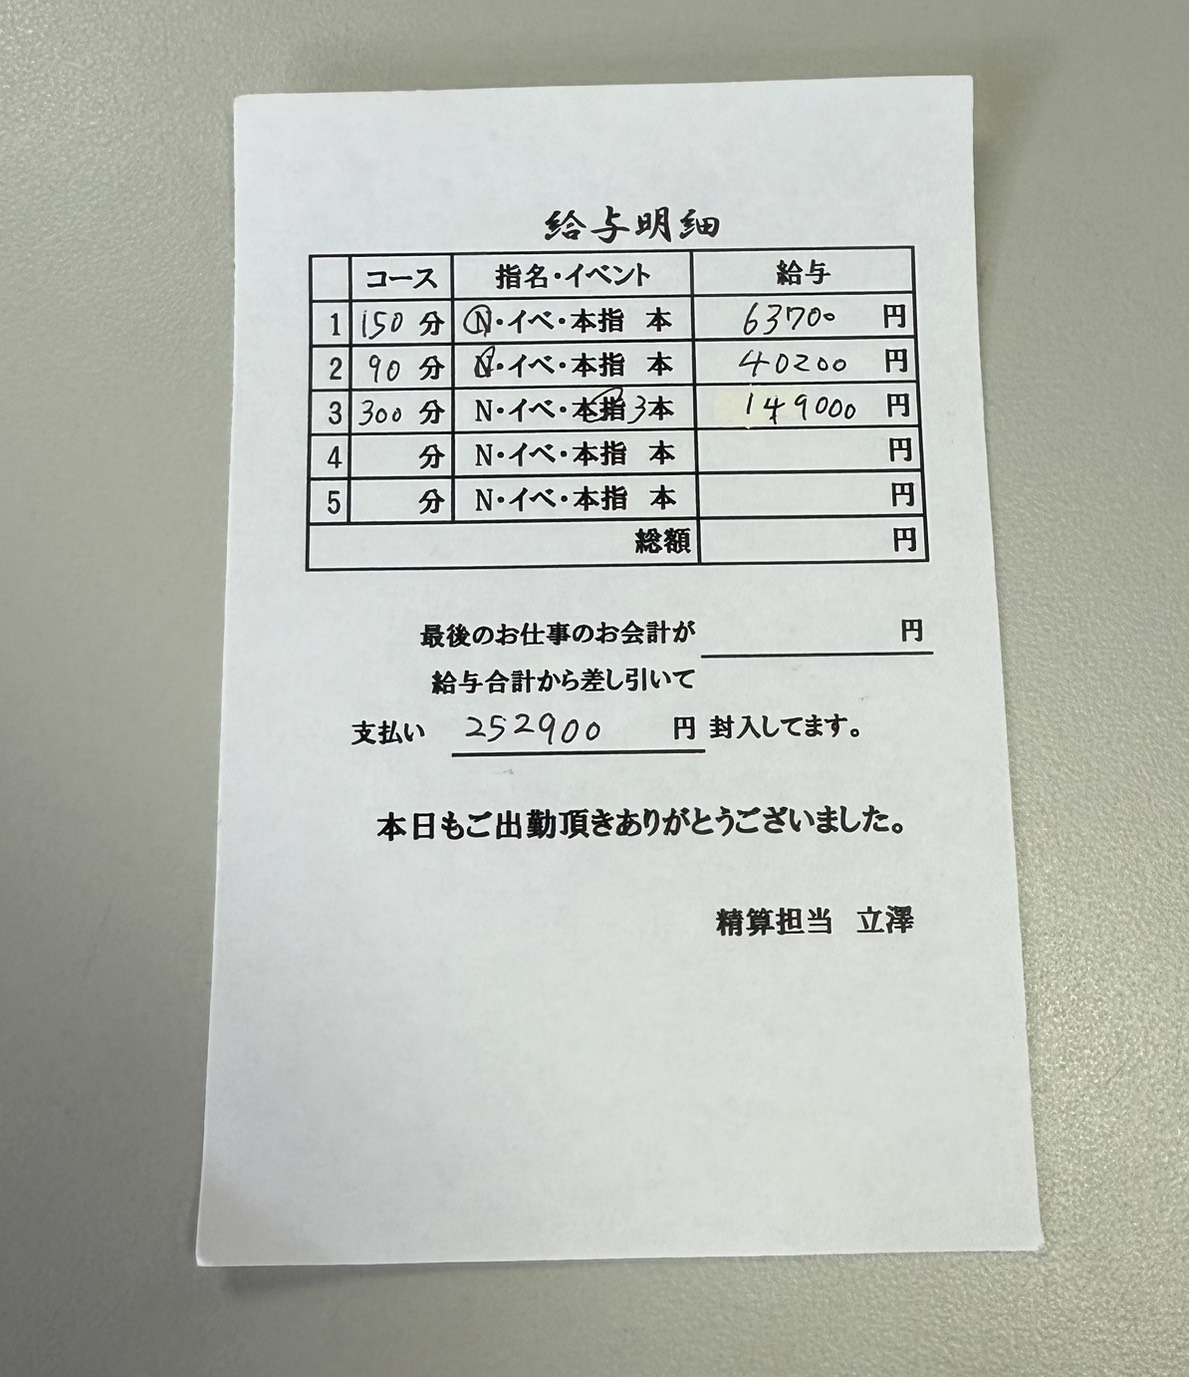 給与明細
コース 指名・イベント 給与
1 150 分 N・イベ・本指 本 63700 円
2 90 分 N・イベ・本指 本 40200 円
3 300 分 N・イベ・本指 3本 149000 円
4 分 N・イベ・本指 本 円
5 分 N・イベ・本指 本 円
総額 円
最後のお仕事のお会計が 円
給与合計から差し引いて
支払い 252900 円 封入してます。
本日もご出勤頂きありがとうございました。
精算担当 立澤